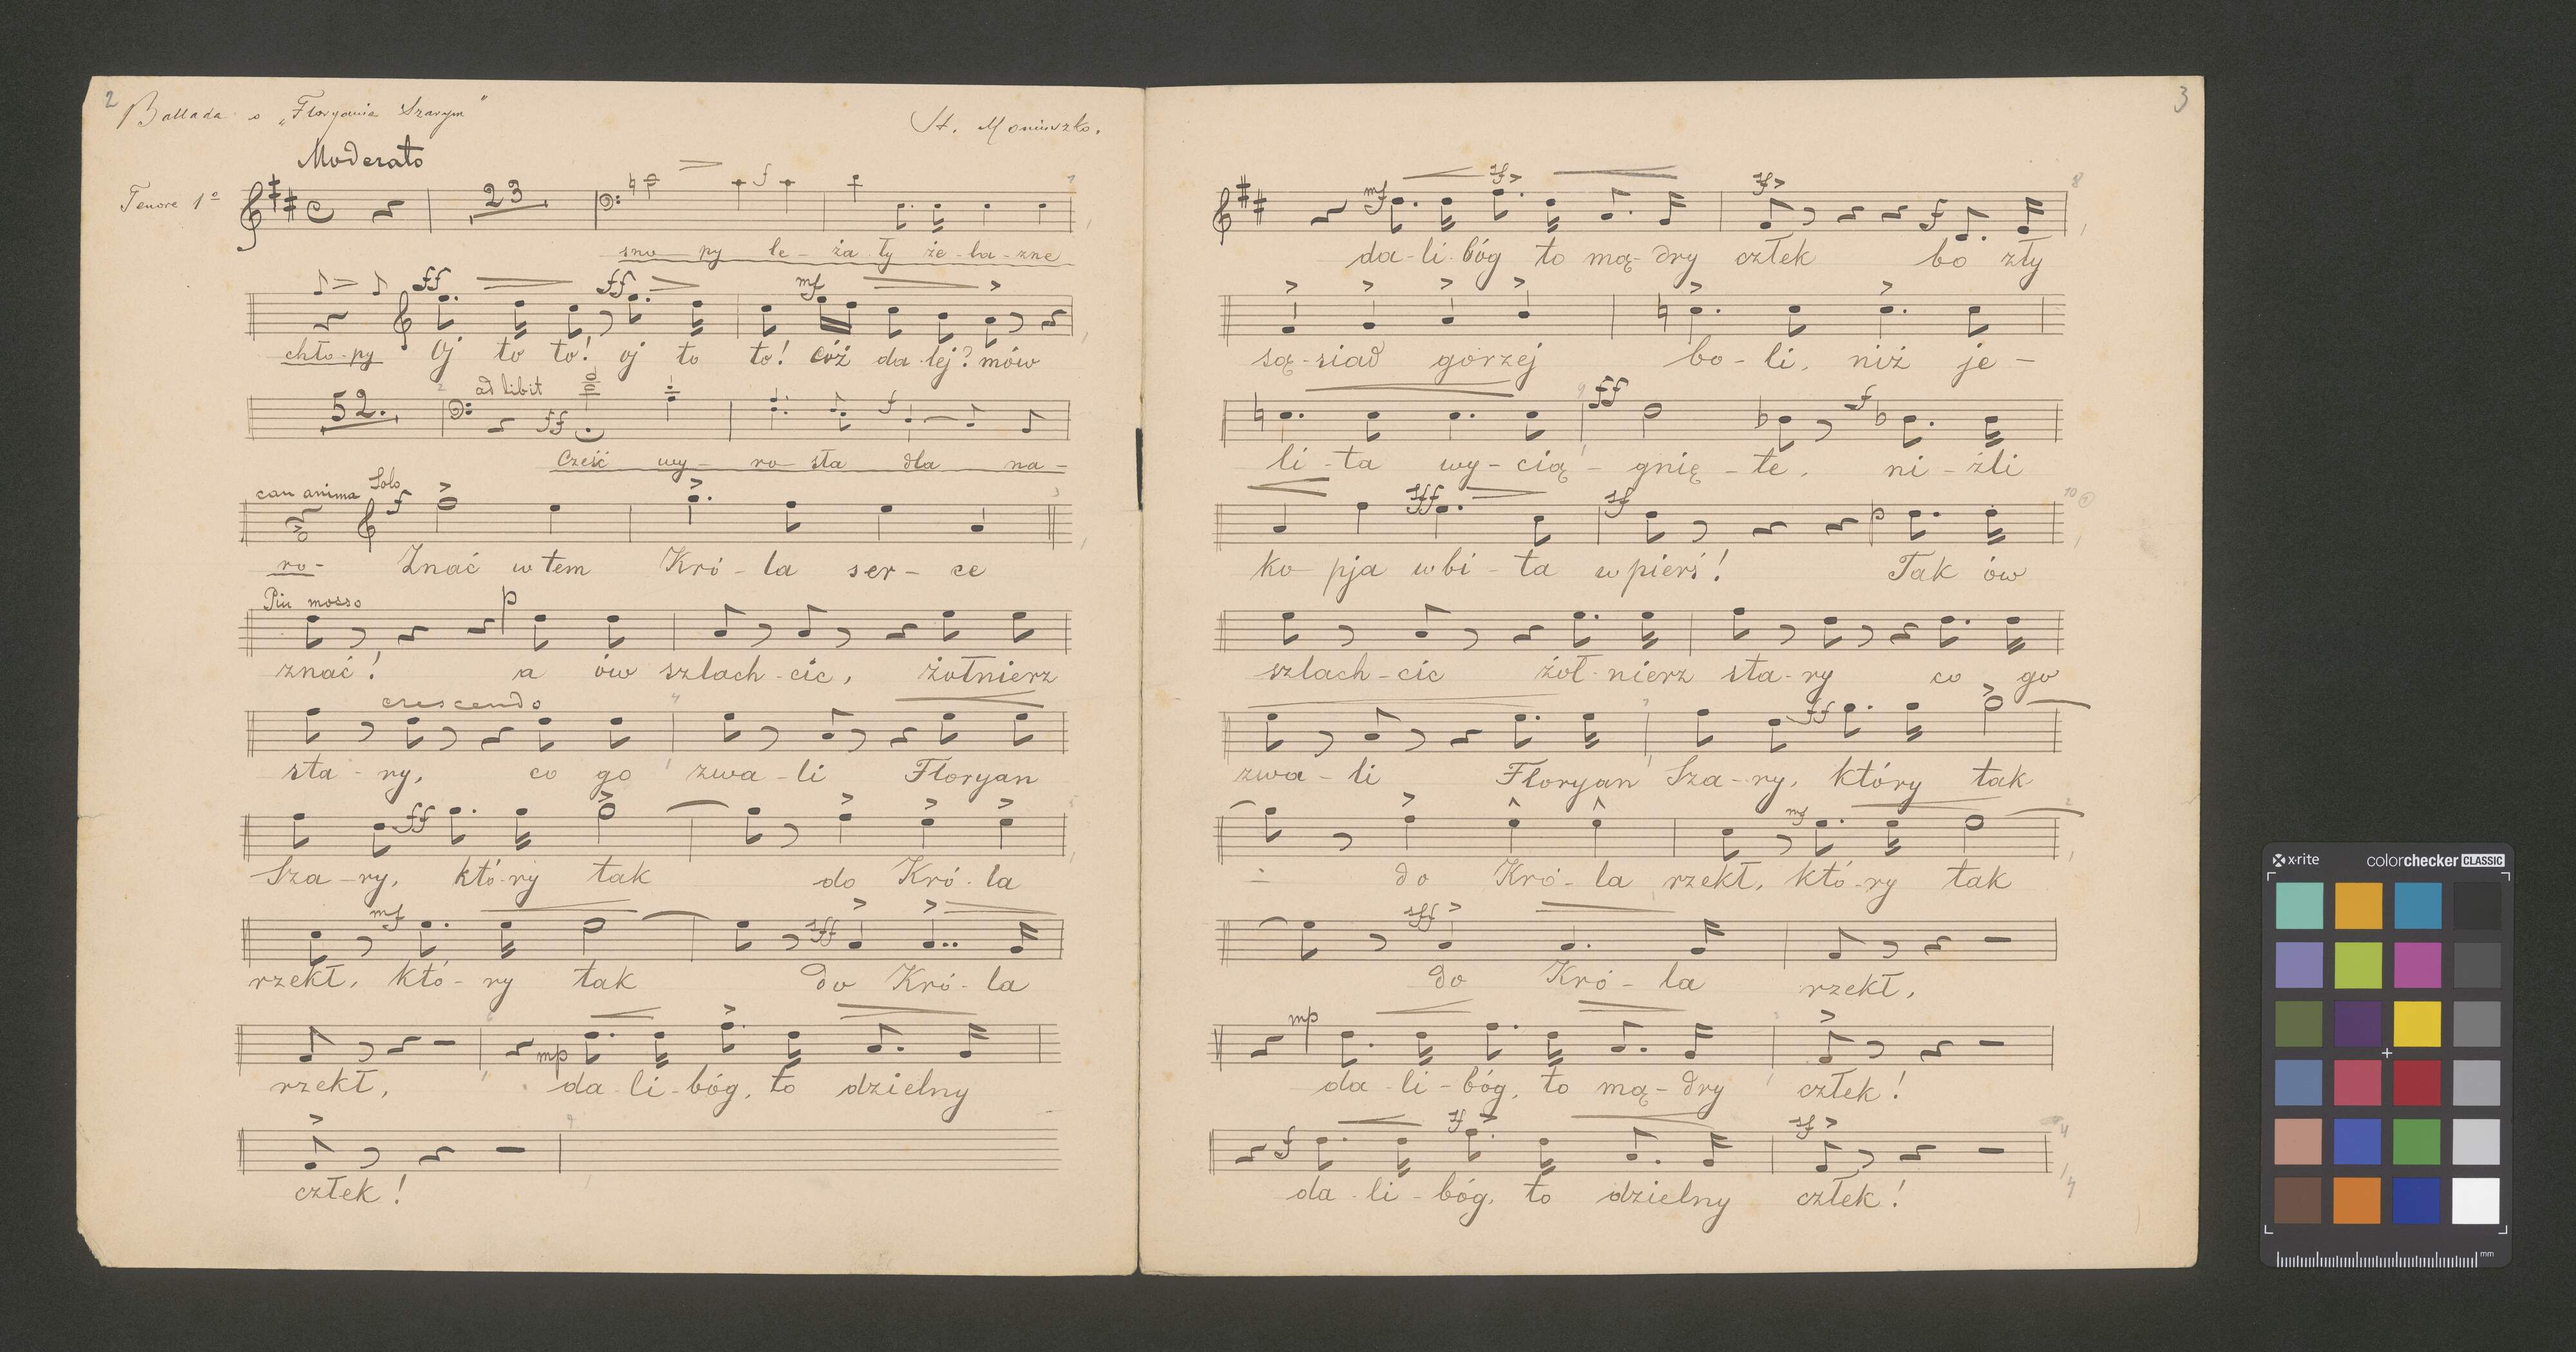 2
Ballada o „Floryanie Szarym"
St. Moniuszko.
Moderato
Tenore 1º
23
f
snopy le-ża-ły że-la-zne
ff ff mf
chło-py Oj to to! oj to to! cóż da-lej? mów
52. ad libit ff f
Cześć wy-ro-sta dla na-
con anima Solo f
ro- Znać w tem Kró-la ser-ce
Piu mosso p
znać! a ów szlach-cic, żołnierz
crescendo
sta-ry, co go zwa-li Floryan
ff
Sza-ry, któ-ry tak do Kró-la
mf sff
rzekł, któ-ry tak do Kró-la
mp
rzekł, da-li-bóg, to dzielny
człek!
3
mf sf sf f
da-li-bóg to mą-dry człek bo zły
są-siad gorzej bo-li, niż je-
ff f
li-ta wy-cią-gnię-te, ni-żli
sff sf p
ko-pja wbi-ta w pierś! Tak ów
szlach-cic żoł-nierz sta-ry co go
ff
zwa-li Floryan Sza-ry, który tak
mf
do Kró-la rzekł, któ-ry tak
sff
do Kró-la rzekł,
mp
da-li-bóg, to mą-dry człek!
f sf sf
da-li-bóg, to dzielny człek!
x-rite colorchecker CLASSIC
mm